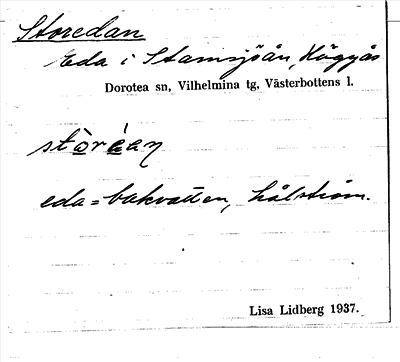 Storedan
Eda i Stamsjöån, Högås
Dorotea sn, Vilhelmina tg, Västerbottens l.
stòréan
eda = bakvatten, hålström.
Lisa Lidberg 1937.